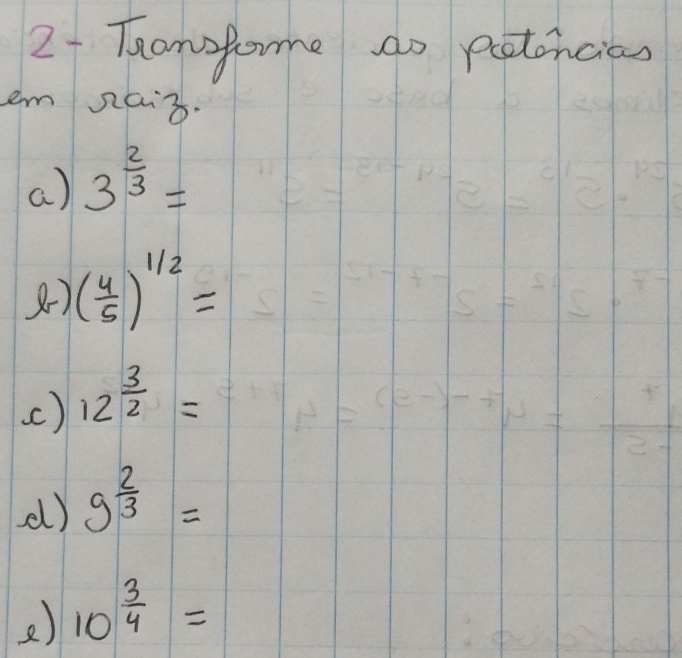 2- Transforme as potências
em raiz.
a) 3^{\frac{2}{3}} =
b) (\frac{4}{5})^{1/2} =
c) 12^{\frac{3}{2}} =
d) 9^{\frac{2}{3}} =
e) 10^{\frac{3}{4}} =